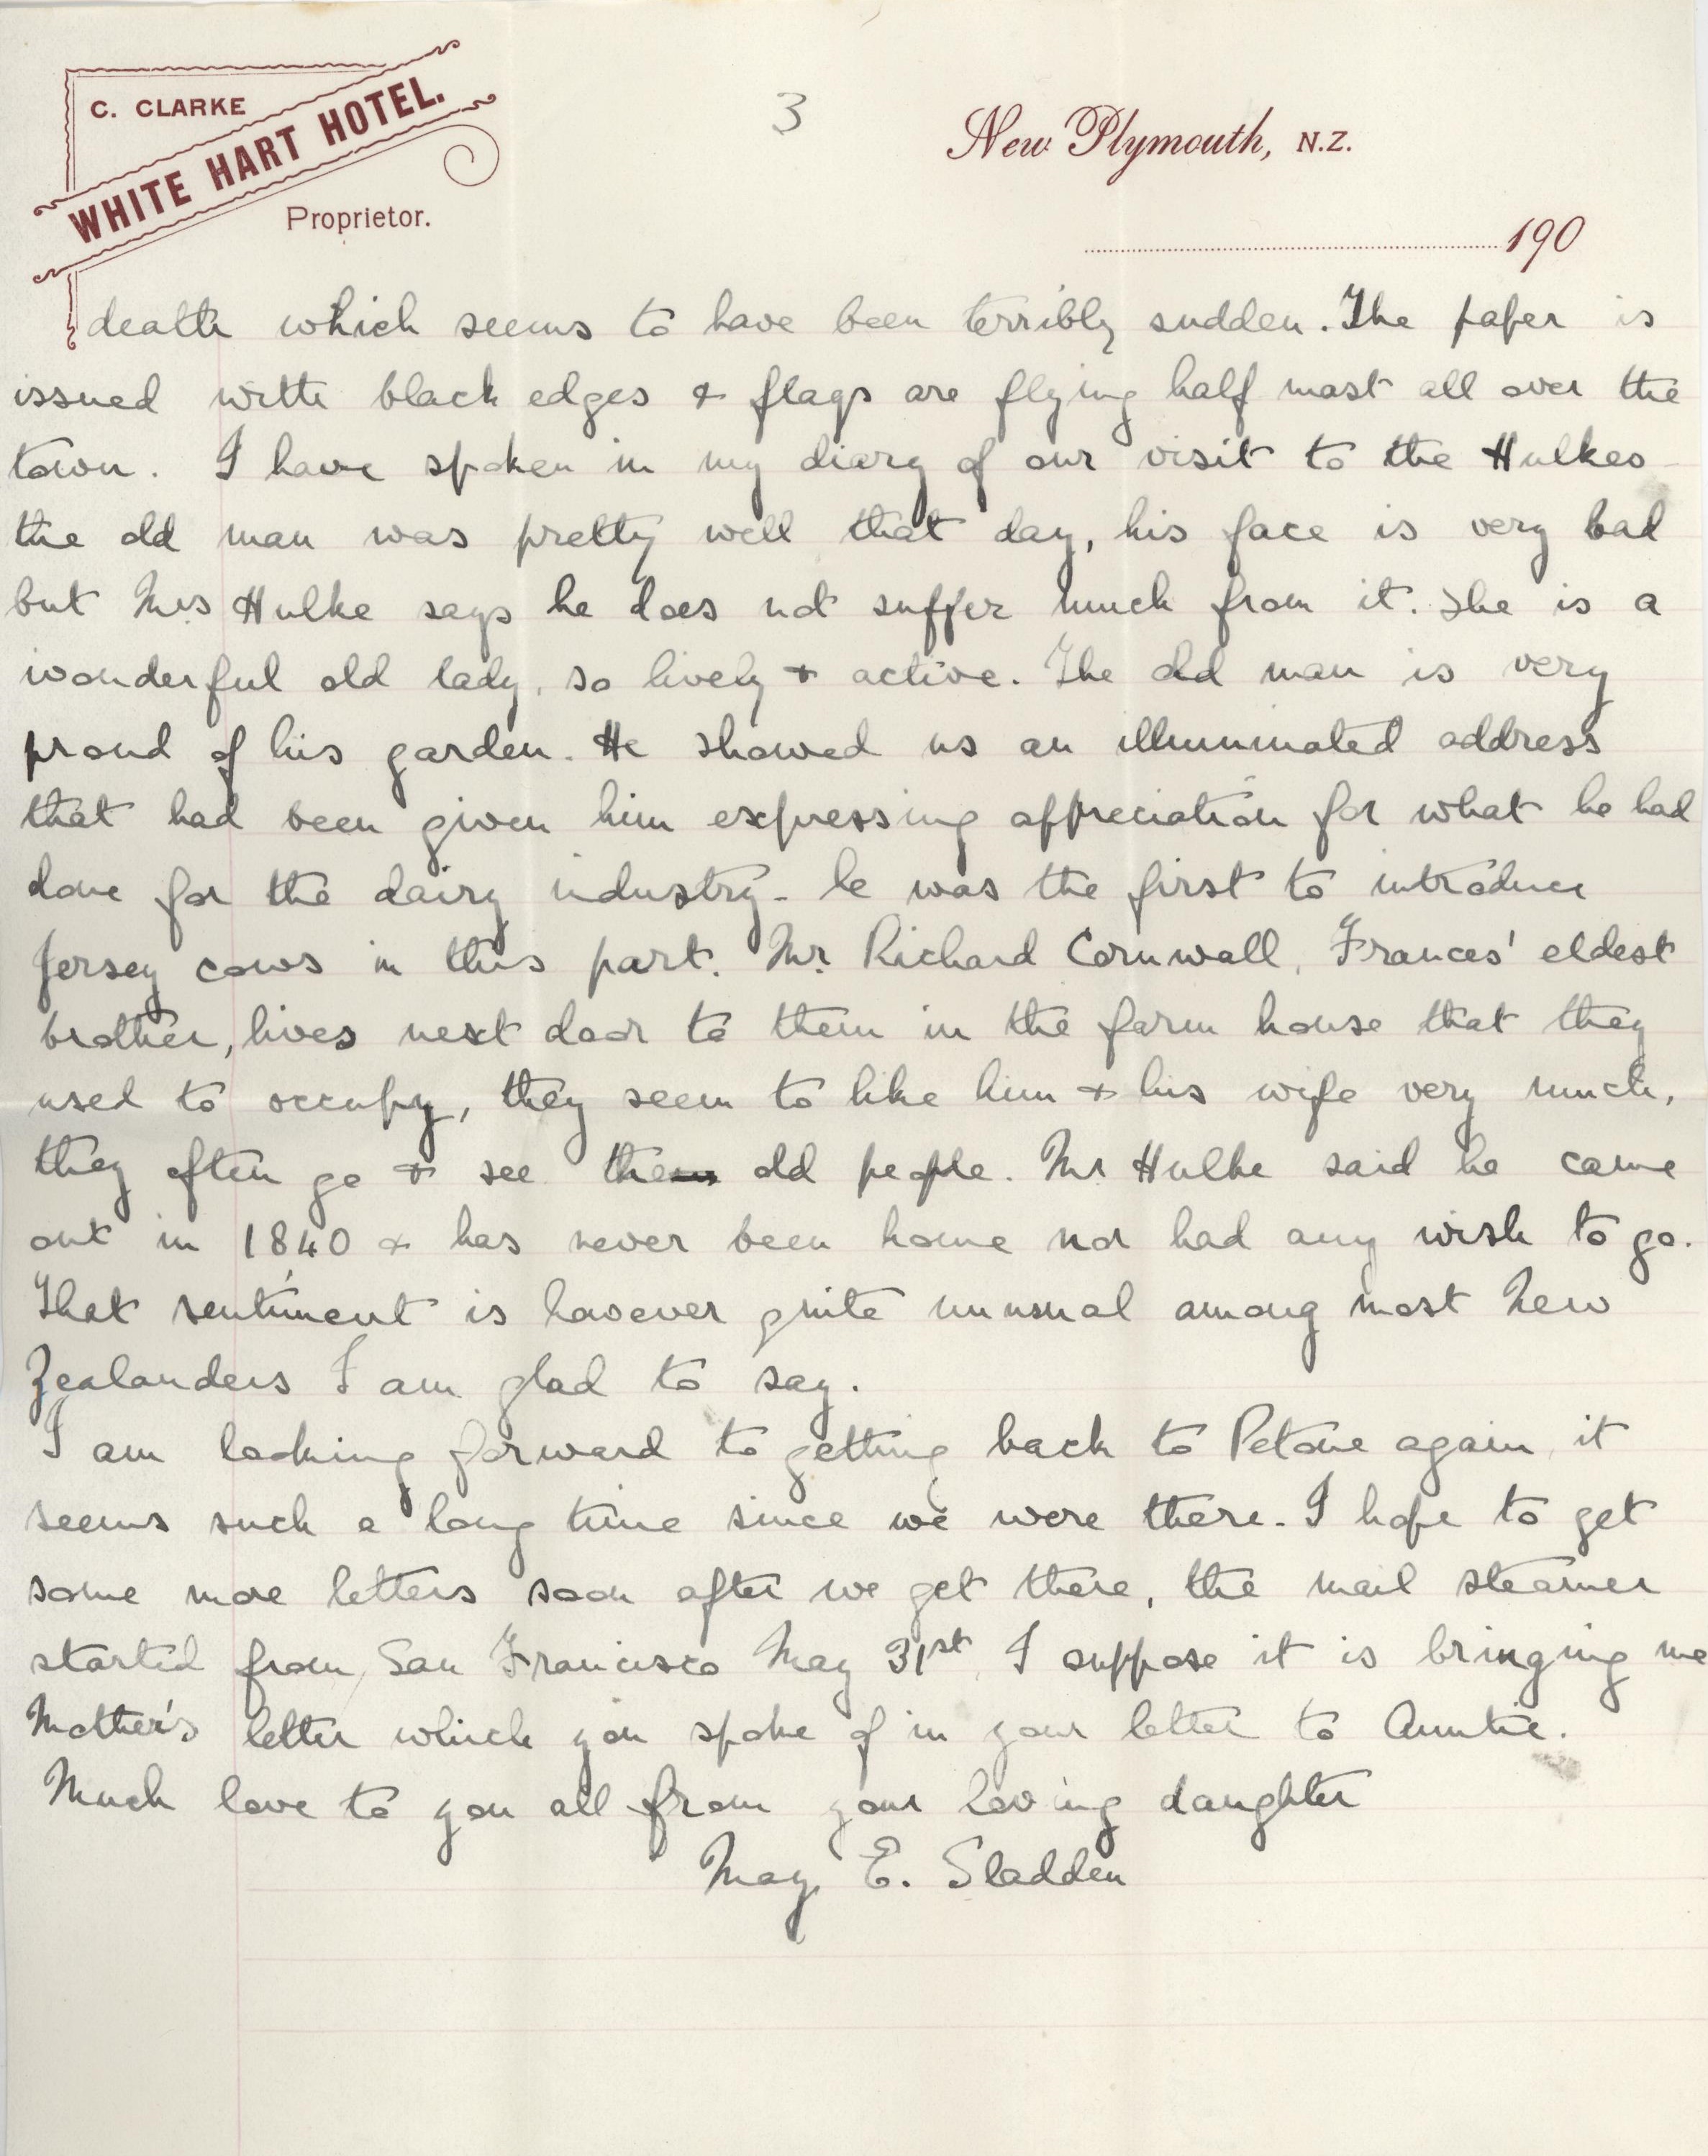 C. CLARKE
WHITE HART HOTEL.
Proprietor.
3
New Plymouth, N.Z.
190
death which seems to have been terribly sudden. The paper is
issued with black edges & flags are flying half mast all over the
town. I have spoken in my diary of our visit to the Hulkes
the old man was pretty well that day, his face is very bad
but Mrs Hulke says he does not suffer much from it. She is a
wonderful old lady, so lively & active. The old man is very
proud of his garden. He showed us an illuminated address
that had been given him expressing appreciation for what he had
done for the dairy industry - he was the first to introduce
Jersey cows in this part. Mr. Richard Cornwall, Frances' eldest
brother, lives next door to them in the farm house that they
used to occupy, they seem to like him & his wife very much,
they often go & see the old people. Mr Hulke said he came
out in 1840 & has never been home nor had any wish to go.
That sentiment is however quite unusual among most New
Zealanders I am glad to say.
I am looking forward to getting back to Petone again, it
seems such a long time since we were there. I hope to get
some more letters soon after we get there, the mail steamer
started from San Francisco May 31st, I suppose it is bringing me
Mother's letter which you spoke of in your letter to Auntie.
Much love to you all from your loving daughter
May E. Sladden